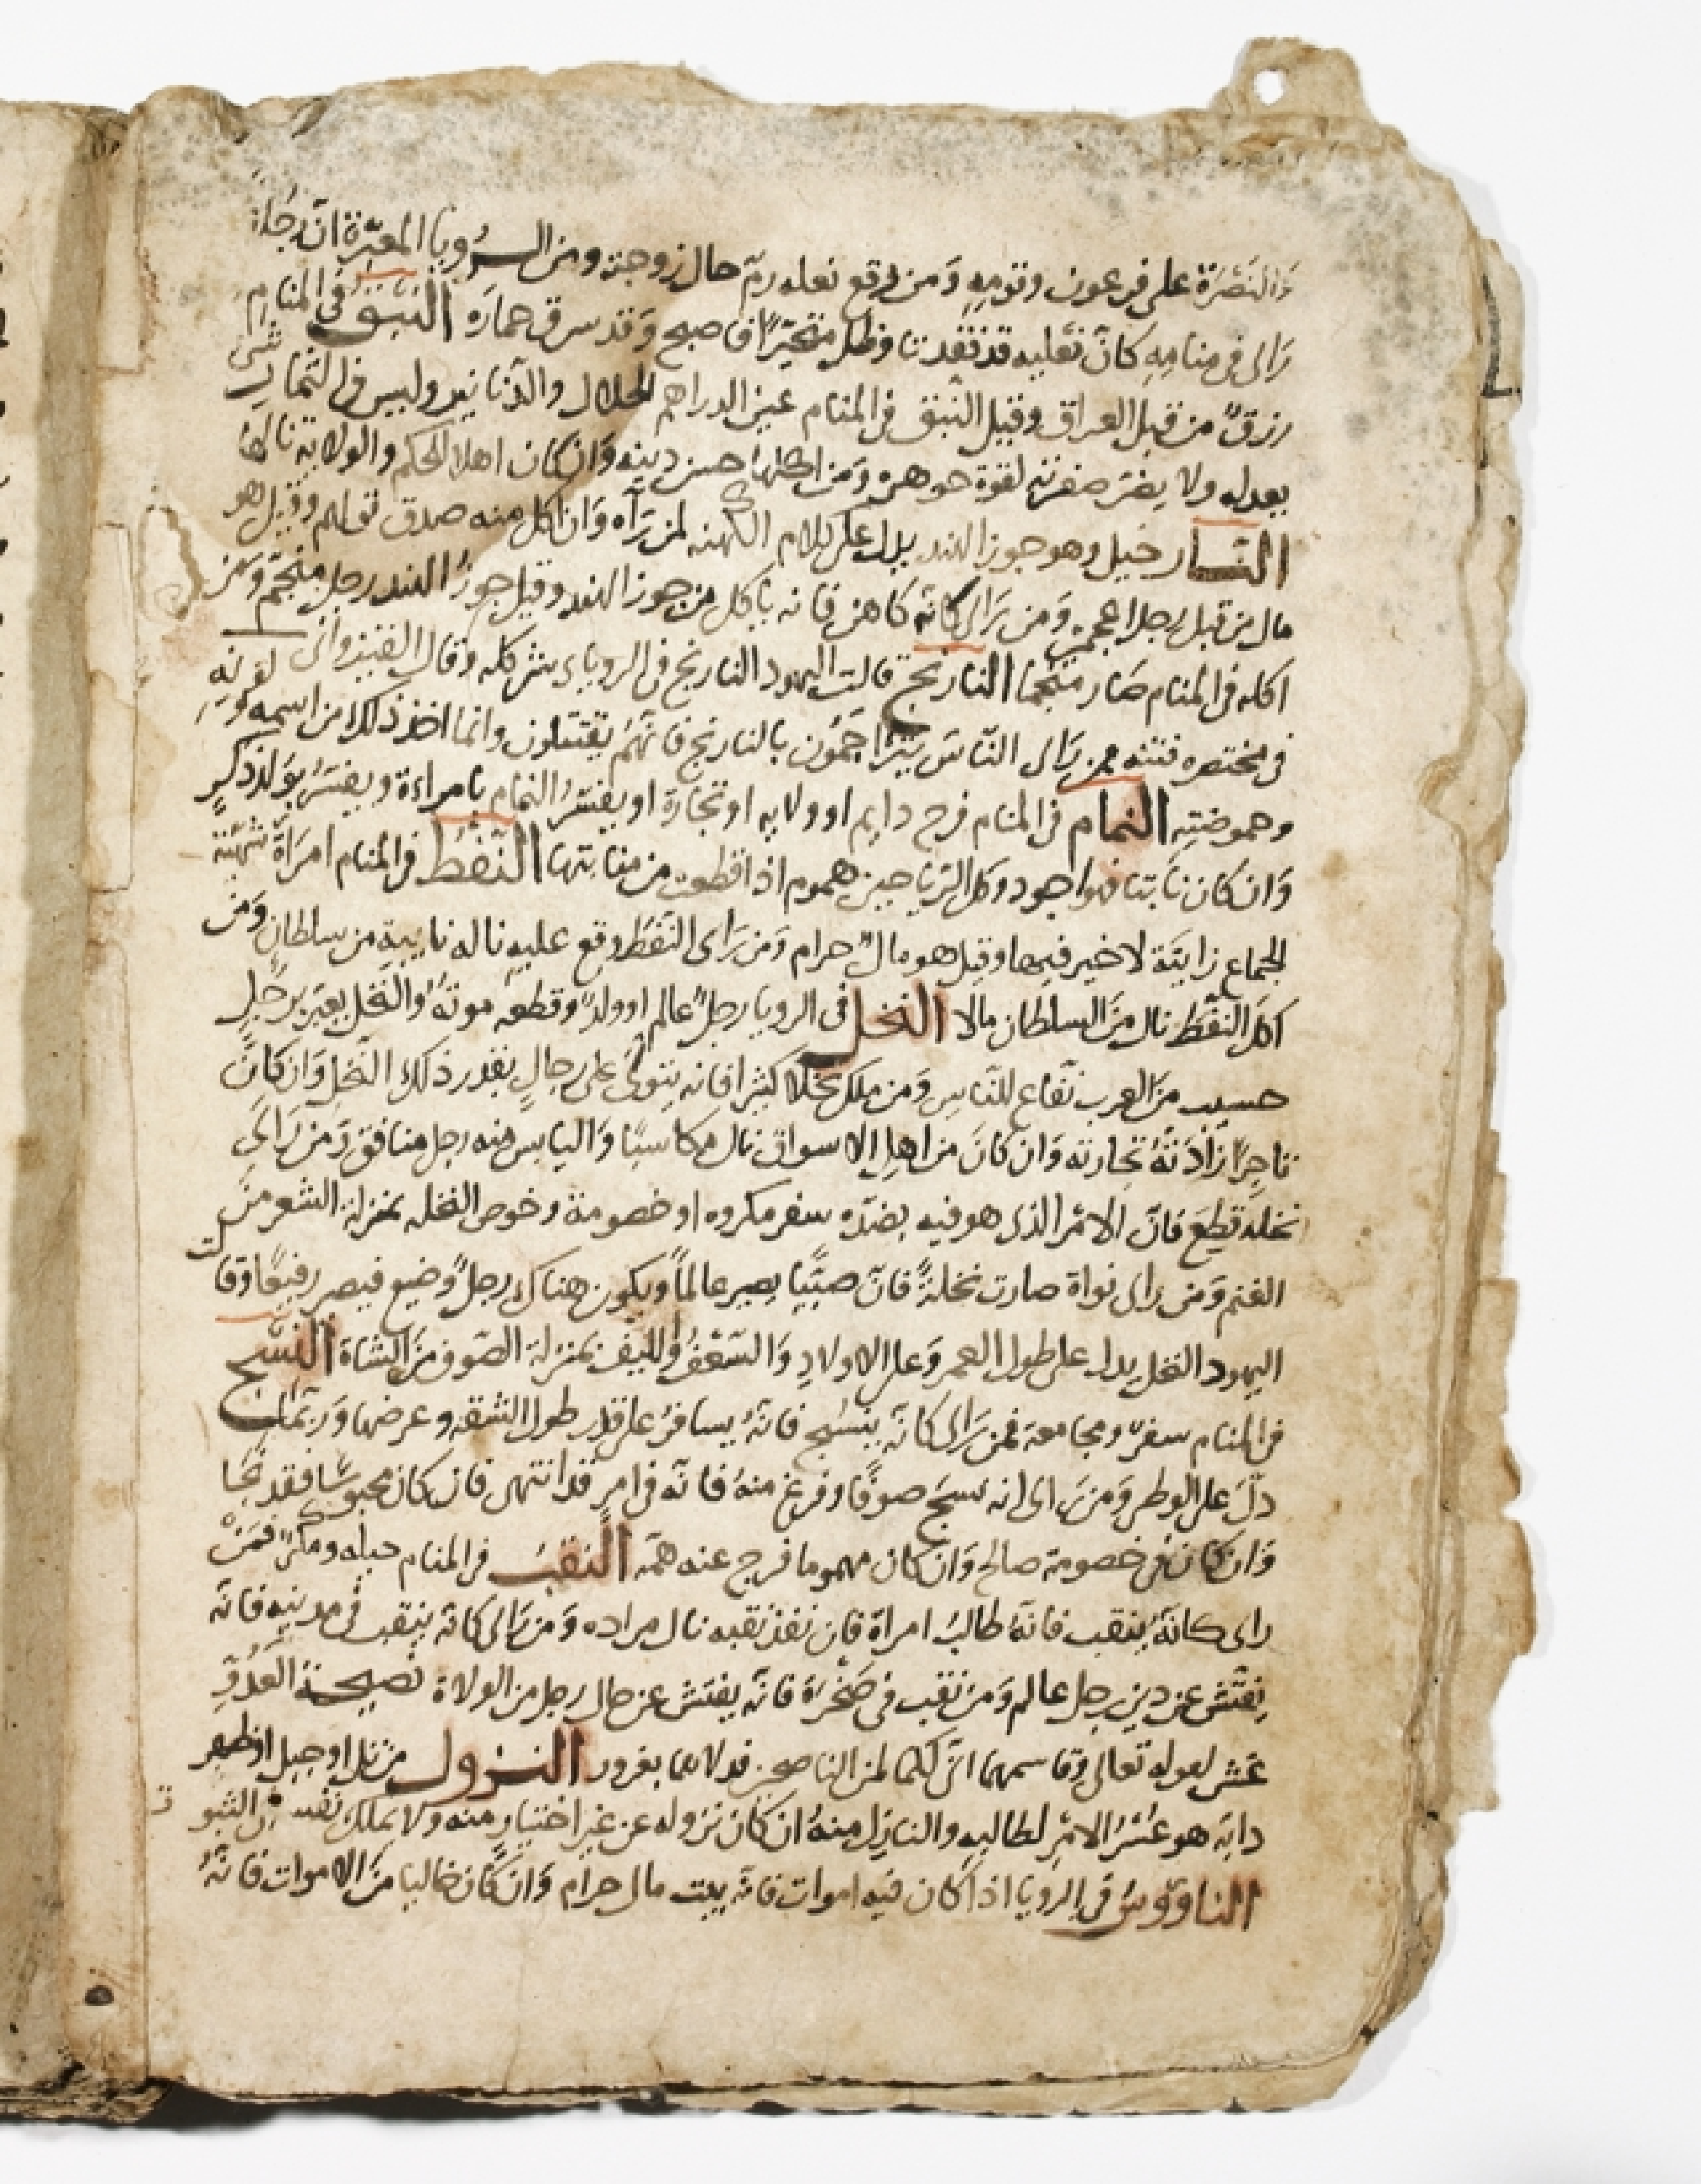 والنصرة على فرعون وقومه ومن رقع نعله رمّ حال زوجته ومن الرويا المعبّرة انّ رجلا
راى في منامه كانّ نعليه قد نفدتا وظل متحيّرًا فاصبح وقد سرق حماره النبق في المنام
رزقٌ من قبل العراق وقيل النبق في المنام عين الدراهم الحلال والدنانير وليس في الثمار شى
يعدله ولا يضر صفرته لقوة جوهره ومن اكلها حسن دينه وان كان اهلا للحكم والولاية نالها
النارجيل وهو جوز الهند يدل على كلام الكهنه لمن رآه وان اكل منه صدق قولهم وقيل هو
مال من قبل رجل اعجمي ومن راى كانّه كاهن فانه ياكل من جوز الهند وقيل جوز الهند رجل منجّم ومن
اكله في المنام صار منجما النارنج قالت اليهود النارنج في الروياء شر كله وقال القيروانى
في مختصره فتنه فمن راى الناس يتراجمون بالنارنج فانّهم يقتتلون وانما اخذ ذلك من اسمه ولونه
وحموضته النمام في المنام فرح دايم او ولايه او تجارة او يفسّر النمام بامراءة ويفسّر بولد ذكرٍ
وان كان نابتا فهو اجود وكل الرياحين هموم اذا قطعت من منابتها النّفط في المنام امراة شهيّة
الجماع زانيَة لا خير فيها وقيل هو مالٌ حرام ومن راى النفط وقع عليه ناله نايبة من سلطان ومن
اكل النفط نال من السلطان مالا النخل في الرويا رجلٌ عالم او ولدٌ وقطعه موتهُ والنخل يعبّر برجلٍ
حسيب من العرب نفاع للناس ومن ملك نخلا كثيرا فانه يتولى على رجالٍ بقدر ذلك النخل وان كان
تاجرًا زادته تجارته وان كان من اهل الاسواق نال مكاسبًا واليابس منه رجل منافق ومن راى
نخله قطع فان الامر الذى هو فيه يضدّه سفر مكروه او خصومة وخوص النخله بمنزلة الشعر من
الغنم ومن راى نواة صارت نخلةً فان صبّيا يصير عالماً ويكون هناك رجلٌ وضيع فيصير رفيعًا وقالت
اليهود النخل يدل على طول العمر وعلى الاولاد والسّعف والليف بمنزلة الصوف من الشاة النسج
في المنام سفرٌ ومجامعة فمن راى كانه ينسج فانه يسافر على قدر طول الشقه وعرضها وربّما
دلّ على الوطى ومن راى انه نسج صوفًا وفرغ منه فانه في امرٍ قد انتهى فان كان محبوسًا فقد نجا
وان كان في خصومة صالح وان كان مهموما فرج عنه همّه النقب في المنام حيله ومكرٌ فمن
راى كانّهُ ينقب فانهُ طالبُ امراة فان نفذ نقبه نال مراده ومن راى كانه ينقب في مدينه فانه
يفتّش عن دين رجل عالم ومن نقب في صخرة فانّه يفتش عن حال رجل من الولاة نصيحة العدوِّ
غش لقوله تعالى وقاسمهما انّى لكما لمن الناصحين فدلاهما بغرور النزول من تل او جبل او ظهر
دابه هو عُسْرُ الامر لطالبه والنازل منه ان كان نزوله عن غير اختيار منه ولا يملك نفسه
الناووس في الرويا اذا كان فيه اموات فانه بيت مال حرام وان كان خاليا من الاموات فانهُ